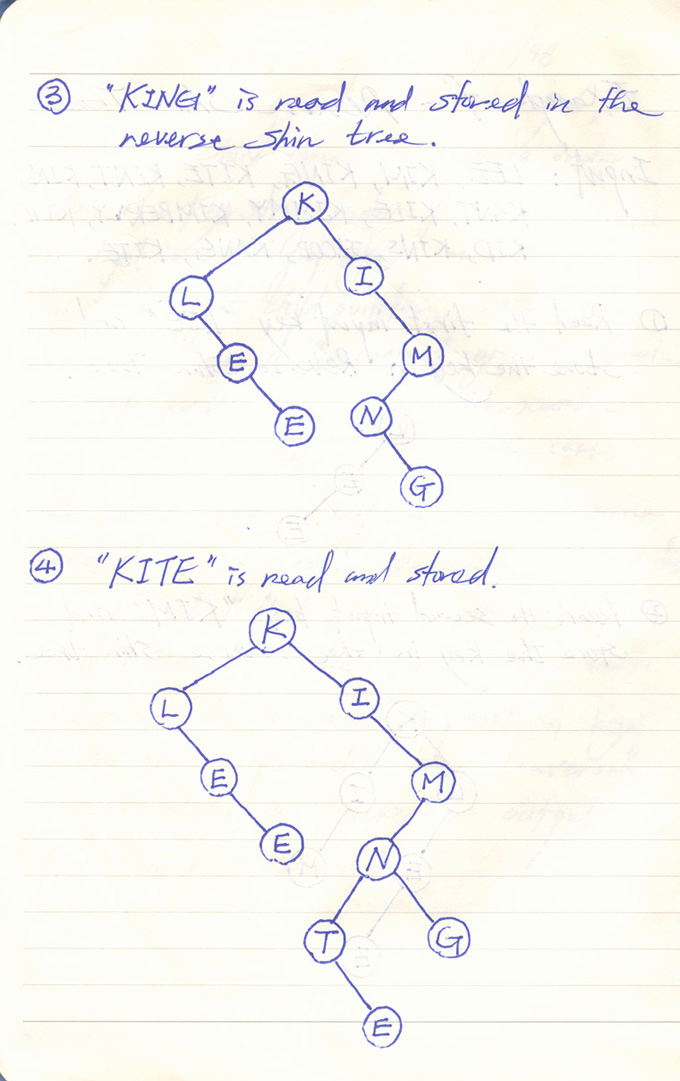 ③ "KING" is read and stored in the
reverse Shin tree.
K
L I
E M
E N
G
④ "KITE" is read and stored.
K
L I
E M
E N
T G
E